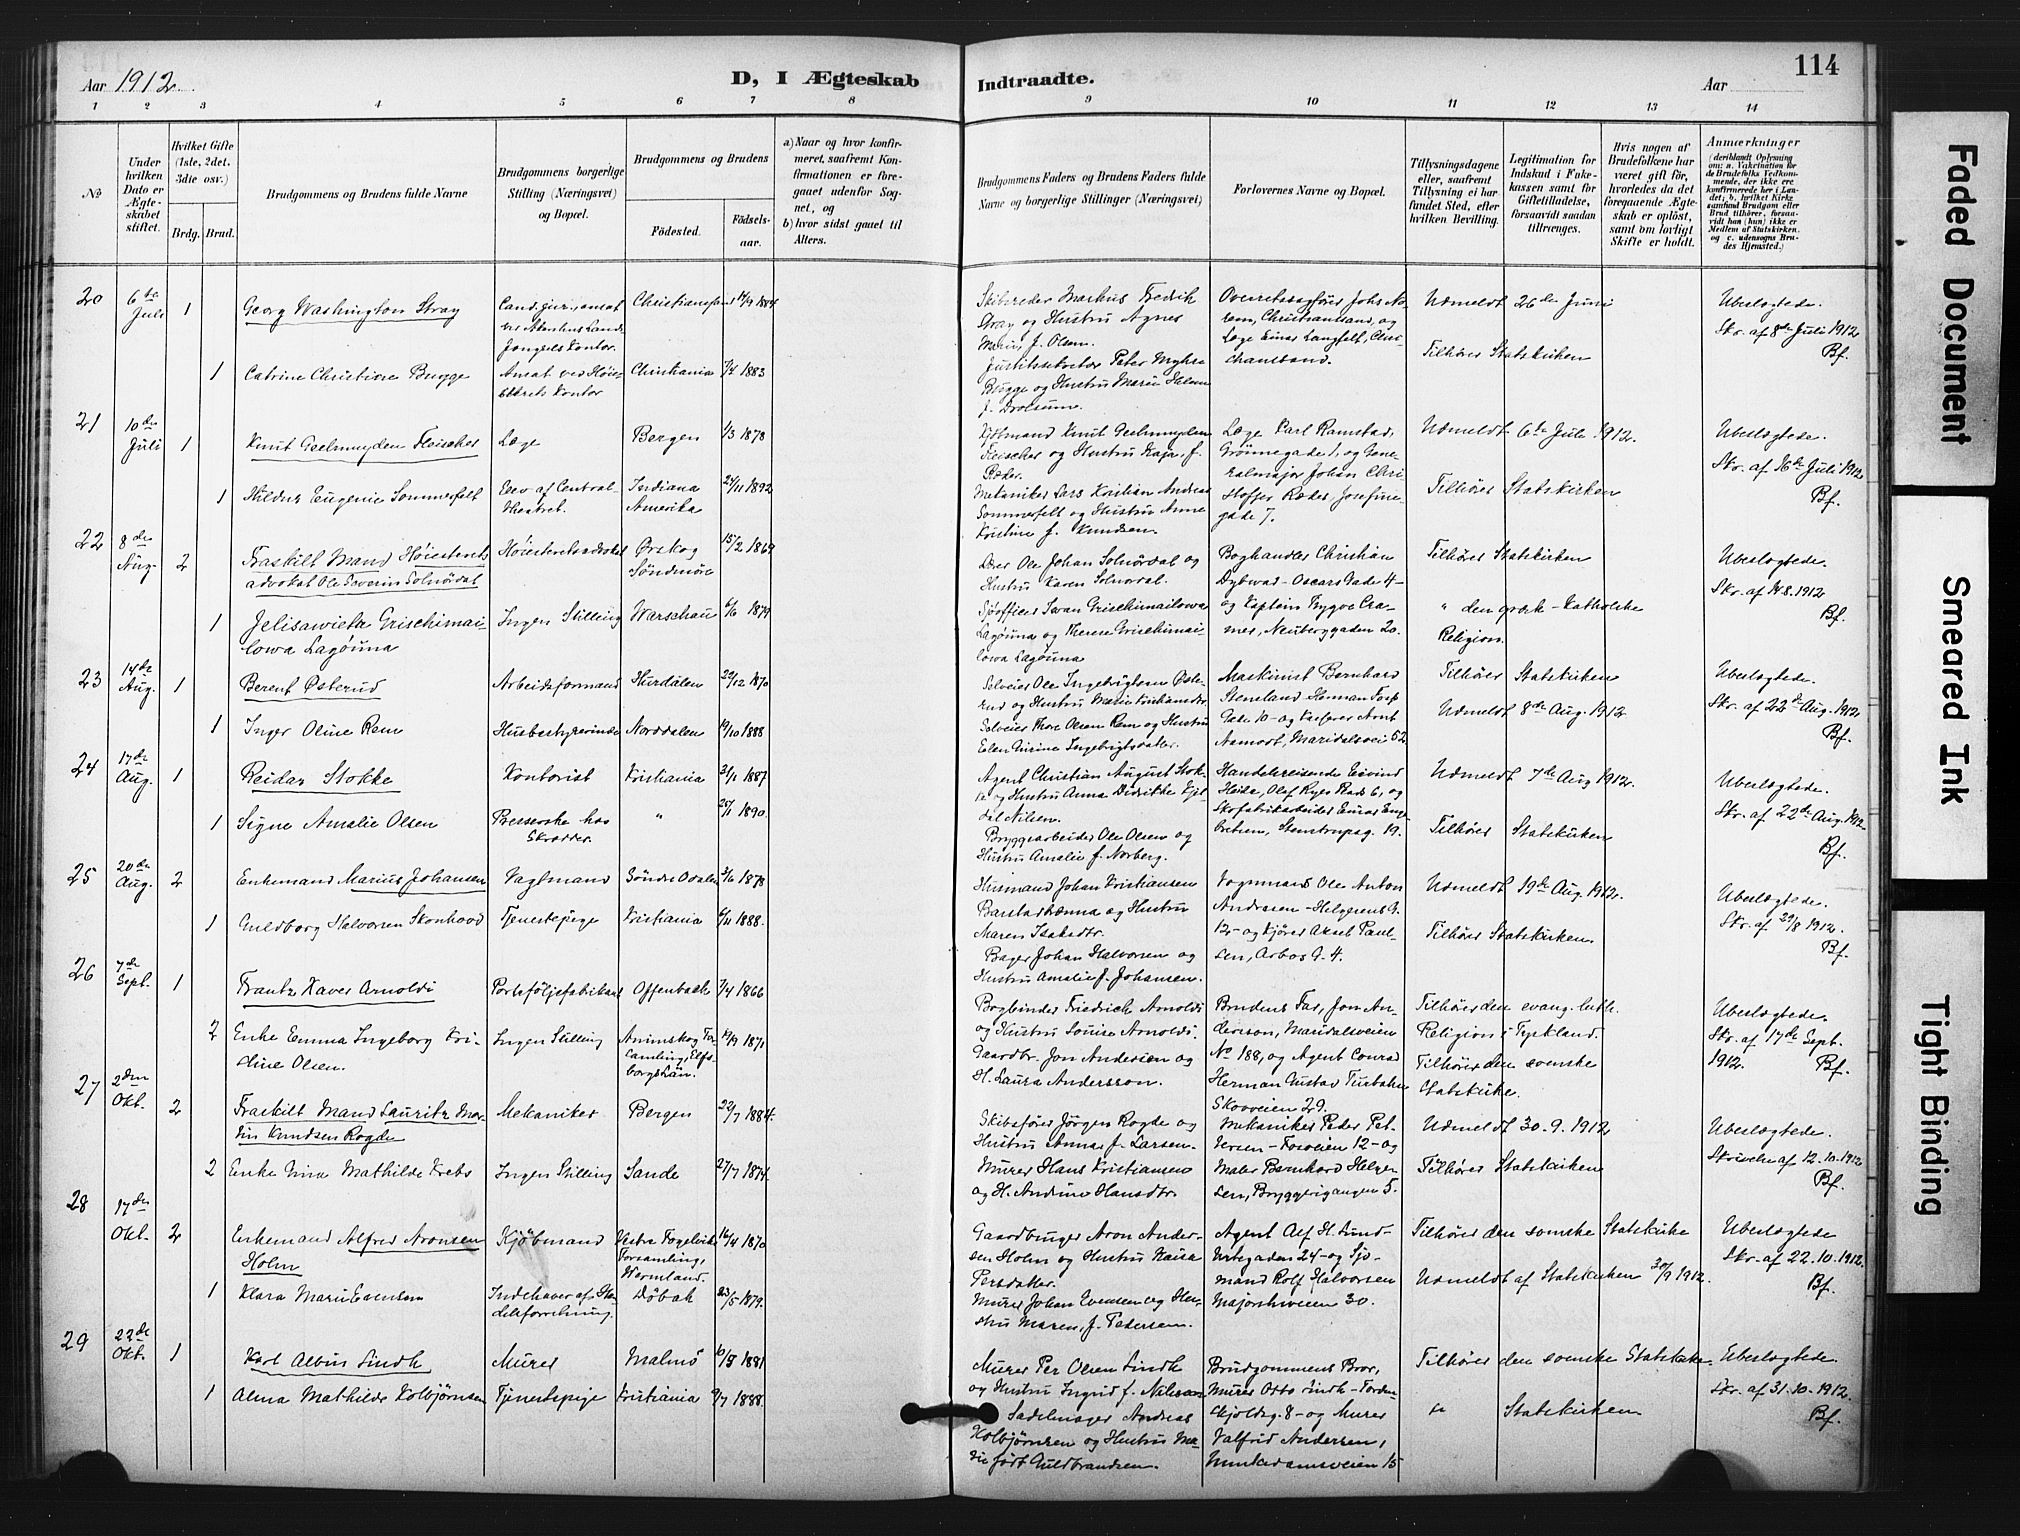 Aar 1912
D, I Ægteskab
Indtraadte.
Aar
114
1 2 3 4 5 6 7 8 9 10 11 12 13 14
No
Under hvilken Dato er Ægteskabet stiftet.
Hvilket Gifte (1ste, 2det, 3die osv.)
Brdg. Brud.
Brudgommens og Brudens fulde Navne
Brudgommens borgerlige Stilling (Næringsvei) og Bopæl.
Brudgommens og Brudens
Fødested.
Fødselsaar.
a) Naar og hvor konfirmeret, saafremt Konfirmationen er foregaaet udenfor Sognet, og
b) hvor sidst gaaet til Alters.
Brudgommens Faders og Brudens Faders fulde Navne og borgerlige Stillinger (Næringsvei)
Forlovernes Navne og Bopæl.
Tillysningsdagene eller, saafremt Tillysning ei har fundet Sted, efter hvilken Bevilling.
Legitimation for Indskud i Fakekassen samt for Giftetilladelse, forsaavidt saadan tiltrænges.
Hvis nogen af Brudefolkene har været gift før, hvorledes da det foregaaende Ægteskab er opløst, samt om lovligt Skifte er holdt.
Anmærkninger
20
6te Juli
1
Georg Washington Stray
Cand. jur., ansat
Christianssand
1884
Skibsreder Markus Fredrik
Stray og Hustru Agnes
Marie, f. Olsen.
Overretssagfører Johs No-
rem, Christianssand, og
Læge Einar Langfelt, Chri-
stianssand.
Udmeldt 26de Juni
Ubeslægtede.
Skr. af 8de Juli 1912
Bf.
1
Catrine Christiane Bugge
Ansat ved Høie-
sterets Kontor
Christiania
7/4 1883
Justitssekretær Peter Myhre
Bugge og Hustru Marie Helene
f. Drolsum.
Tilhører Statskirken
21
10de Juli
1
Knut Geelmuyden Fleischer
Læge
Bergen
1/3 1878
Kjøbmand Knut Geelmuyden
Fleischer og Hustru Kaja, f.
Læge Karl Ramstad,
Grønnegade 1, og Gene-
ralmajor Johan Chri-
stoffer Ræder, Josefine-
gade 7.
Udmeldt 6te Juli 1912.
Ubeslægtede.
Skr. af 16de Juli 1912
Bf.
1
Hildur Eugenie Sommerfelt
Elev af Central-
theatret.
Indiana
Amerika
1892
Mekaniker Lars Kristian Andreas
Sommerfelt og Hustru Anne
Kristine f. Knudsen.
Tilhører Statskirken
22
8de Aug.
2
Fraskilt Mand Høiesterets
advokat Ole Severin Solnørdal
Høiesteretsadvokat
Ørskog
Søndmøre
15/2 1869
Lærer Ole Johan Solnørdal og
Hustru Karen Solnørdal.
Boghandler Christian
Dybwad - Oscars Gade 4 -
og Kaptein Trygve Cra-
mer, Neuberggaden 20.
Tilhører Statskirken
Ubeslægtede.
Skr. af 14.8.1912
Bf.
1
Jelisawieta Grischimai-
lowa Lagóuna
Ingen Stilling
Warschau
6/6 1879
Sjøofficer Iwan Grischimailowa
Lagóuna og Therese Grischimai-
lowa Lagóuna
" den græk-Katholske
Religion.
23
14de Aug.
1
Berent Østerud
Arbeidsformand
Hurdalen
29/12 1870
Selveier Ole Ingebrigtsen Øste-
rud og Hustru Marie Kristiansdtr.
Maskinist Bernhard
Steneland Herman Foss
Gade 10 - og Kasserer Arnt
Asmort, Maridalsvei 62
Tilhører Statskirken
Ubeslægtede.
Skr. af 22de Aug. 1912.
Bf.
1
Inger Oline Rem
Husbestyrerinde
Norddalen
19/10 1888
Selveier Thore Olsen Rem og Hustru
Elen Gurine Ingebrigtsdatter.
Udmeldt 8de Aug. 1912
24
17de Aug.
1
Reidar Stokke
Kontorist
Kristiania
31/1 1887
Agent Christian August Stok-
ke og Hustru Anna Didrikke Kjel-
dil Nilsen.
Handelsreisende Eivind
Heide, Olaf Ryes Plads 6, og
Skofabrikarbeider Einar Enge-
bretsen, Stenstrupsg. 19.
Udmeldt 7de Aug 1912.
Ubeslægtede.
Skr. af 22de Aug. 1912
Bf.
1
Signe Amalie Olsen
Presserske hos
Skrædder.
"
25/1 1890.
Bryggearbeider Ole Olsen og
Hustru Amalie f. Norberg.
Tilhører Statskirken
25
20de Aug.
2
Enkemand Marius Johansen
Vagtmand
Søndre Odalen
3/6 1878
Husmand Johan Kristiansen
Barstadtrænna og Hustru
Maren Isaksdtr.
Vognmand Ole Anton
Andresen - Helgesens G.
12 - og Kjører Aksel Paul-
sen, Arbos G. 4.
Udmeldt 19de Aug. 1912.
Ubeslægtede.
Skr. af 29/8 1912.
Bf.
1
Guldborg Halvorsen Skonhovd
Tjenestepige
Kristiania
6/11 1888.
Bager Johan Halvorsen og
Hustru Amalie f. Johansen.
Tilhører Statskirken.
26
7de Sept.
1
Frantz Xaver Arnoldi
Porteføljefabrikant
Offenbach
7/4 1866
Bogbinder Friedrich Arnoldi
og Hustru Louise Arnoldi.
Brudens Far, Jon An-
dersson, Maridalsveien
No 188, og Agent Conrad
Herman Gustav Turbahn
Skovveien 29.
Tilhører den evang. luth.
Religion i Tyskland.
Ubeslægtede.
Skr. af 17de Sept.
1912.
Bf.
2
Enke Emma Ingeborg Kri-
stine Olsen.
Ingen Stilling
Animskog For-
samling, Elfs-
borgs Län.
19/9 1871
Gaardbr. Jon Andersen og
H. Laura Andersson.
Tilhører den svenske
Statskirke.
27
2den Okt.
2
Fraskilt Mand Lauritz Mar-
tin Knudsen Rogde
Mekaniker
Bergen
22/7 1884.
Skibsfører Jørgen Rogde og
Hustru Anna f. Larsen.
Mekaniker Peder Pet-
tersen - Fosveien 12 - og
Maler Bernhard Helge-
sen, Bryggerigangen 5.
Udmeldt 30.9.1912
Ubeslægtede.
Skrivelse af 12.10.1912
Bf.
2
Enke Nina Mathilde Krebs
Ingen Stilling
Sande
27/7 1874.
Murer Hans Kristiansen
og H. Andrine Hansdtr.
Tilhører Statskirken
28
17de Okt.
2
Enkemand Alfred Aronsen
Holm
Kjøbmand
Vestra Fogelviks
Forsamling,
Wermland.
16/4 1870
Gaardbruger Aron Ander-
sen Holm og Hustru Kaisa
Persdatter.
Agent Alf H. Lund -
Urtegaden 24 - og Sjø-
mand Rolf Halvorsen
Majorstuveien 30.
Tilhører den svenske Statskirke
Ubeslægtede
Skr. af 22.10.1912.
Bf.
1
Klara Marie Evensen
Indehaver af Han-
delsforretning.
Drøbak
23/5 1879.
Murer Johan Evensen og Hu-
stru Maren, f. Pedersen.
Udmeldt af Statskirken 30/9 1912.
29
22de Okt.
1
Karl Albin Lindh
Murer
Malmö
10/5 1881
Murer Per Olsen Lindh
og Hustru Ingrid f. Nilsson
Brudgommens Bror,
Murer Otto Lindh - Torden-
skjoldsg. 8 - og Murer
Valfrid Andersen,
Munkedamsveien 15
Tilhører den svenske Statskirke.
Ubeslægtede.
Skr. af 31.10.1912.
Bf.
1
Alma Mathilde Kolbjørnsen
Tjenestepige
Kristiania
9/7 1888.
Sadelmager Andreas
Kolbjørnsen og Hustru Ma-
rie født Guldbrandsen.
" Statskirken
Faded Document
Smeared Ink
Tight Binding